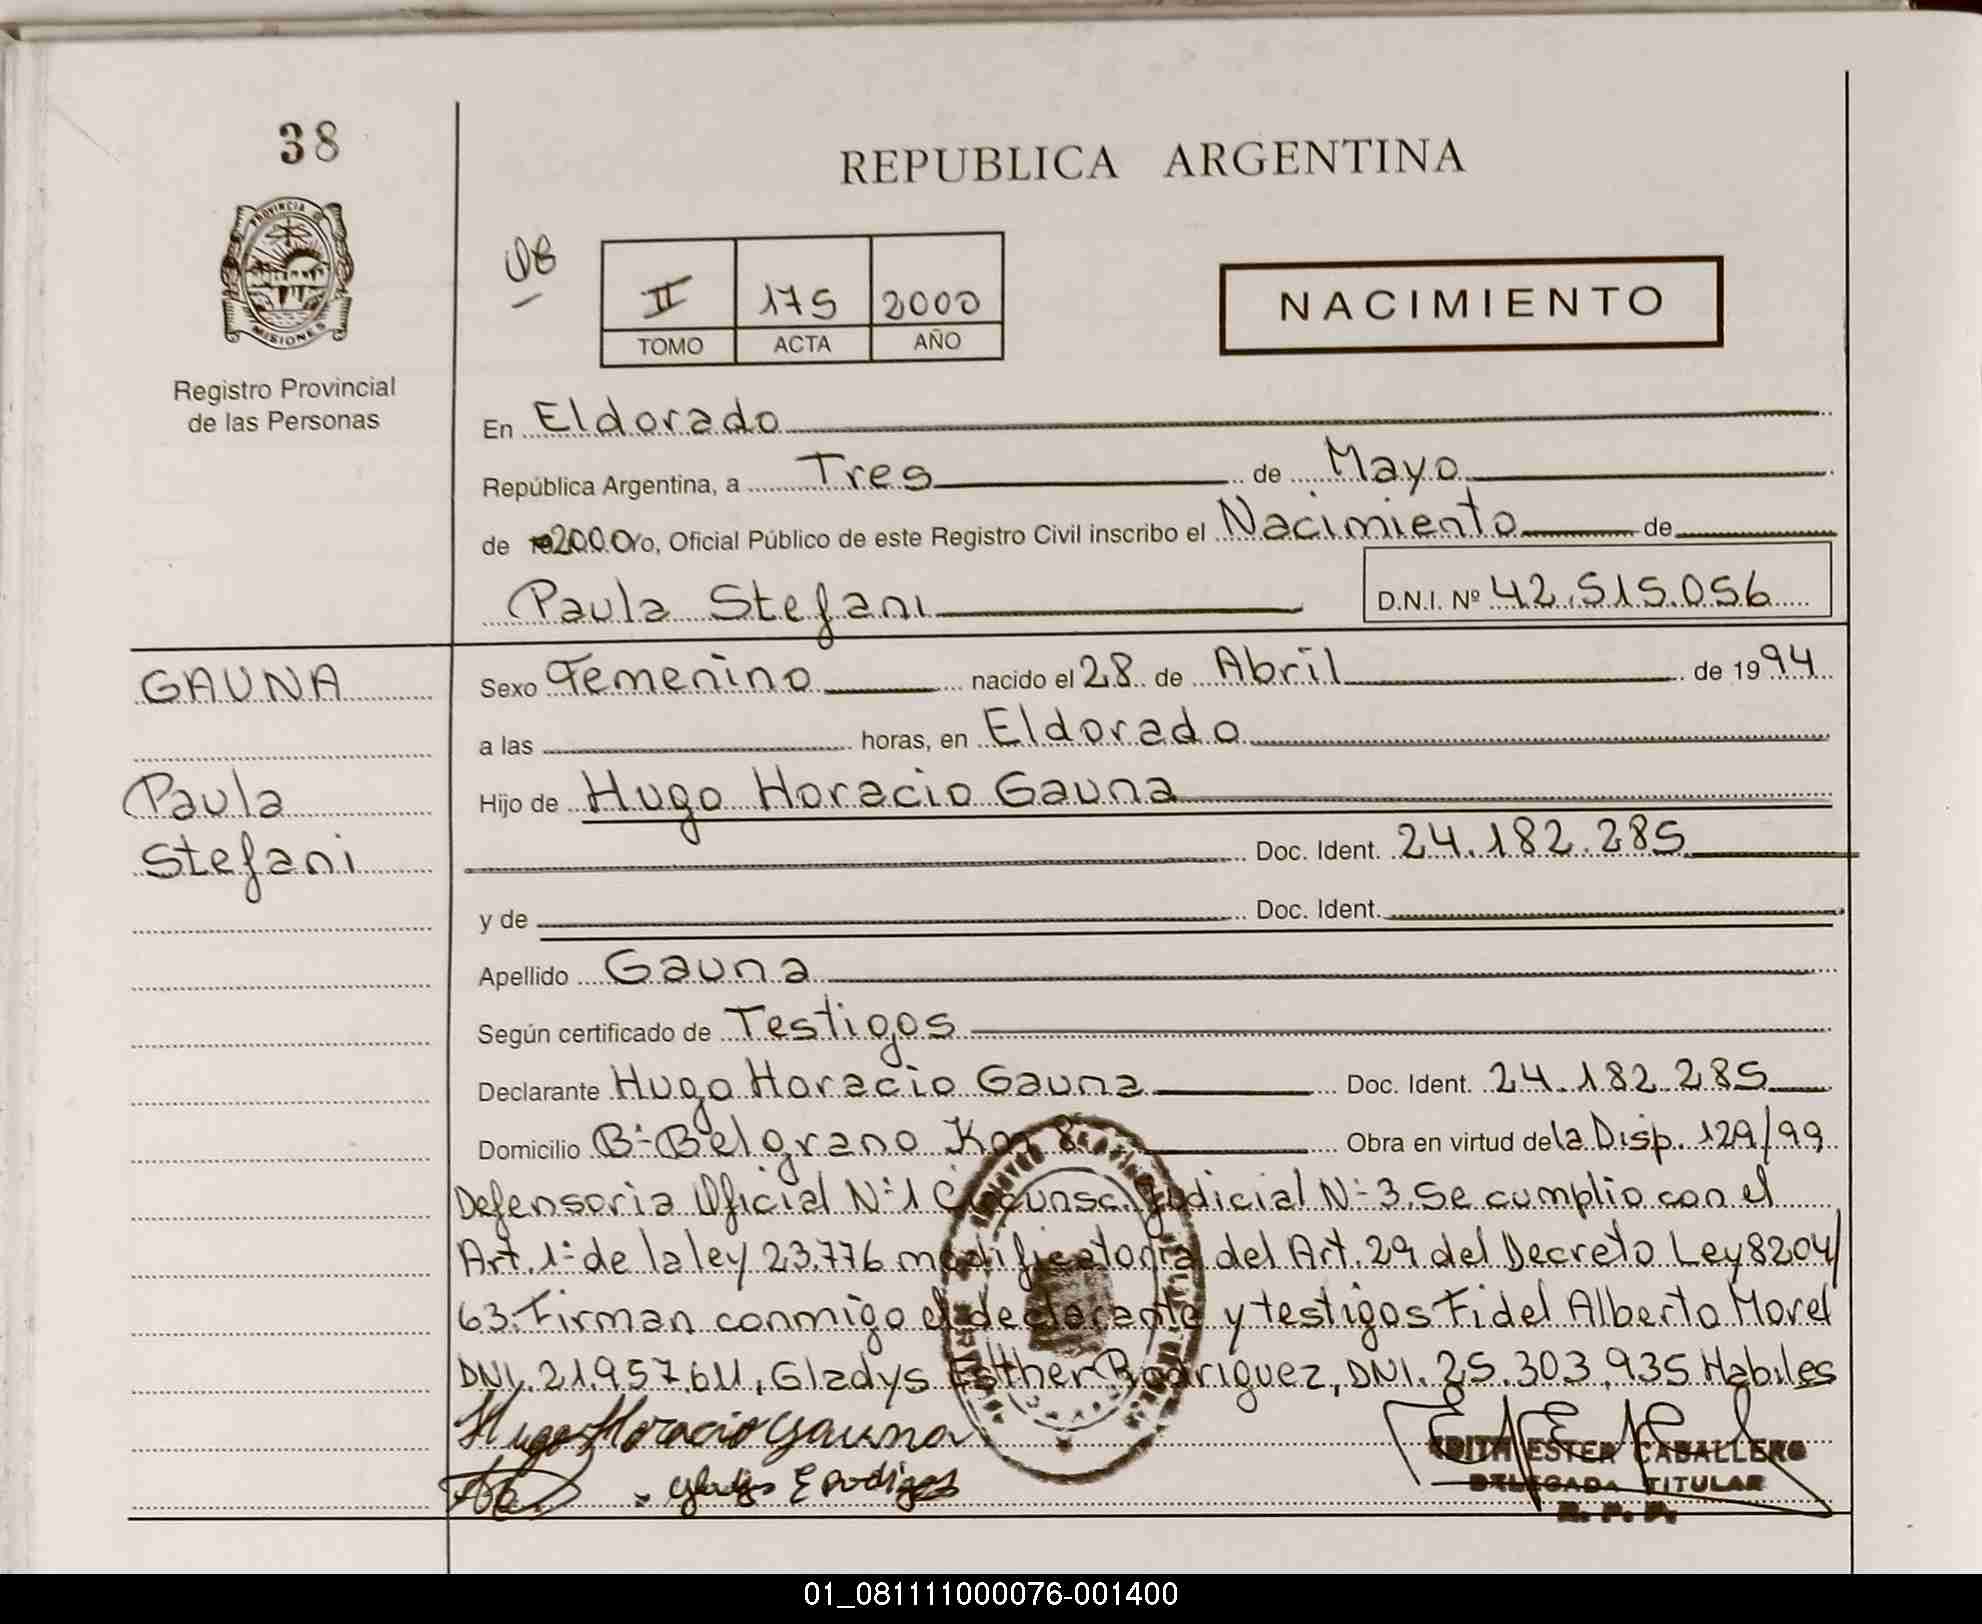 38
REPUBLICA ARGENTINA
PROVINCIA DE
MISIONES
Registro Provincial
de las Personas
II 175 2000
TOMO ACTA AÑO
NACIMIENTO
En Eldorado
República Argentina, a Tres de Mayo
de 2000 yo, Oficial Público de este Registro Civil inscribo el Nacimiento de
Paula Stefani D.N.I. Nº 42.515.056
GAUNA
Paula
Stefani
Sexo Femenino nacido el 28 de Abril de 1994
a las horas, en Eldorado
Hijo de Hugo Horacio Gauna
Doc. Ident. 24.182.285
y de Doc. Ident.
Apellido Gauna
Según certificado de Testigos
Declarante Hugo Horacio Gauna Doc. Ident. 24.182.285
Domicilio Bº Belgrano Km 8 Obra en virtud de la Disp. 129/99
Defensoria Oficial Nº 1 Circunsc. Judicial Nº 3. Se cumplio con el
Art. 1º de la ley 23.776 modificatoria del Art. 29 del Decreto Ley 8204/
63. Firman conmigo el declarante y testigos Fidel Alberto Morel
DNI. 21.957.611, Gladys Esther Rodriguez, DNI. 25.303.935 Habiles
Hugo Horacio Gauna
EDITH ESTER CABALLERO
DELEGADA TITULAR
R. P. P.
01_081111000076-001400